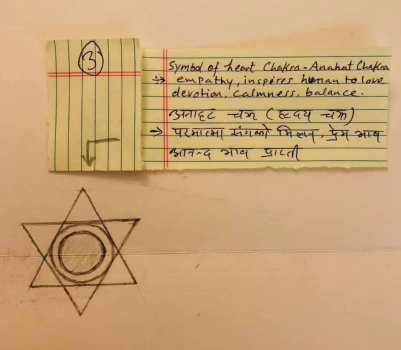 3
Symbol of heart Chakra - Anahat Chakra
empathy, inspires human to love
devotion, calmness, balance.
अनाहट चक्र (हृदय चक्र)
→ परमात्मा संगको मिलन, प्रेम भाव
आनन्द भाव प्राप्ती